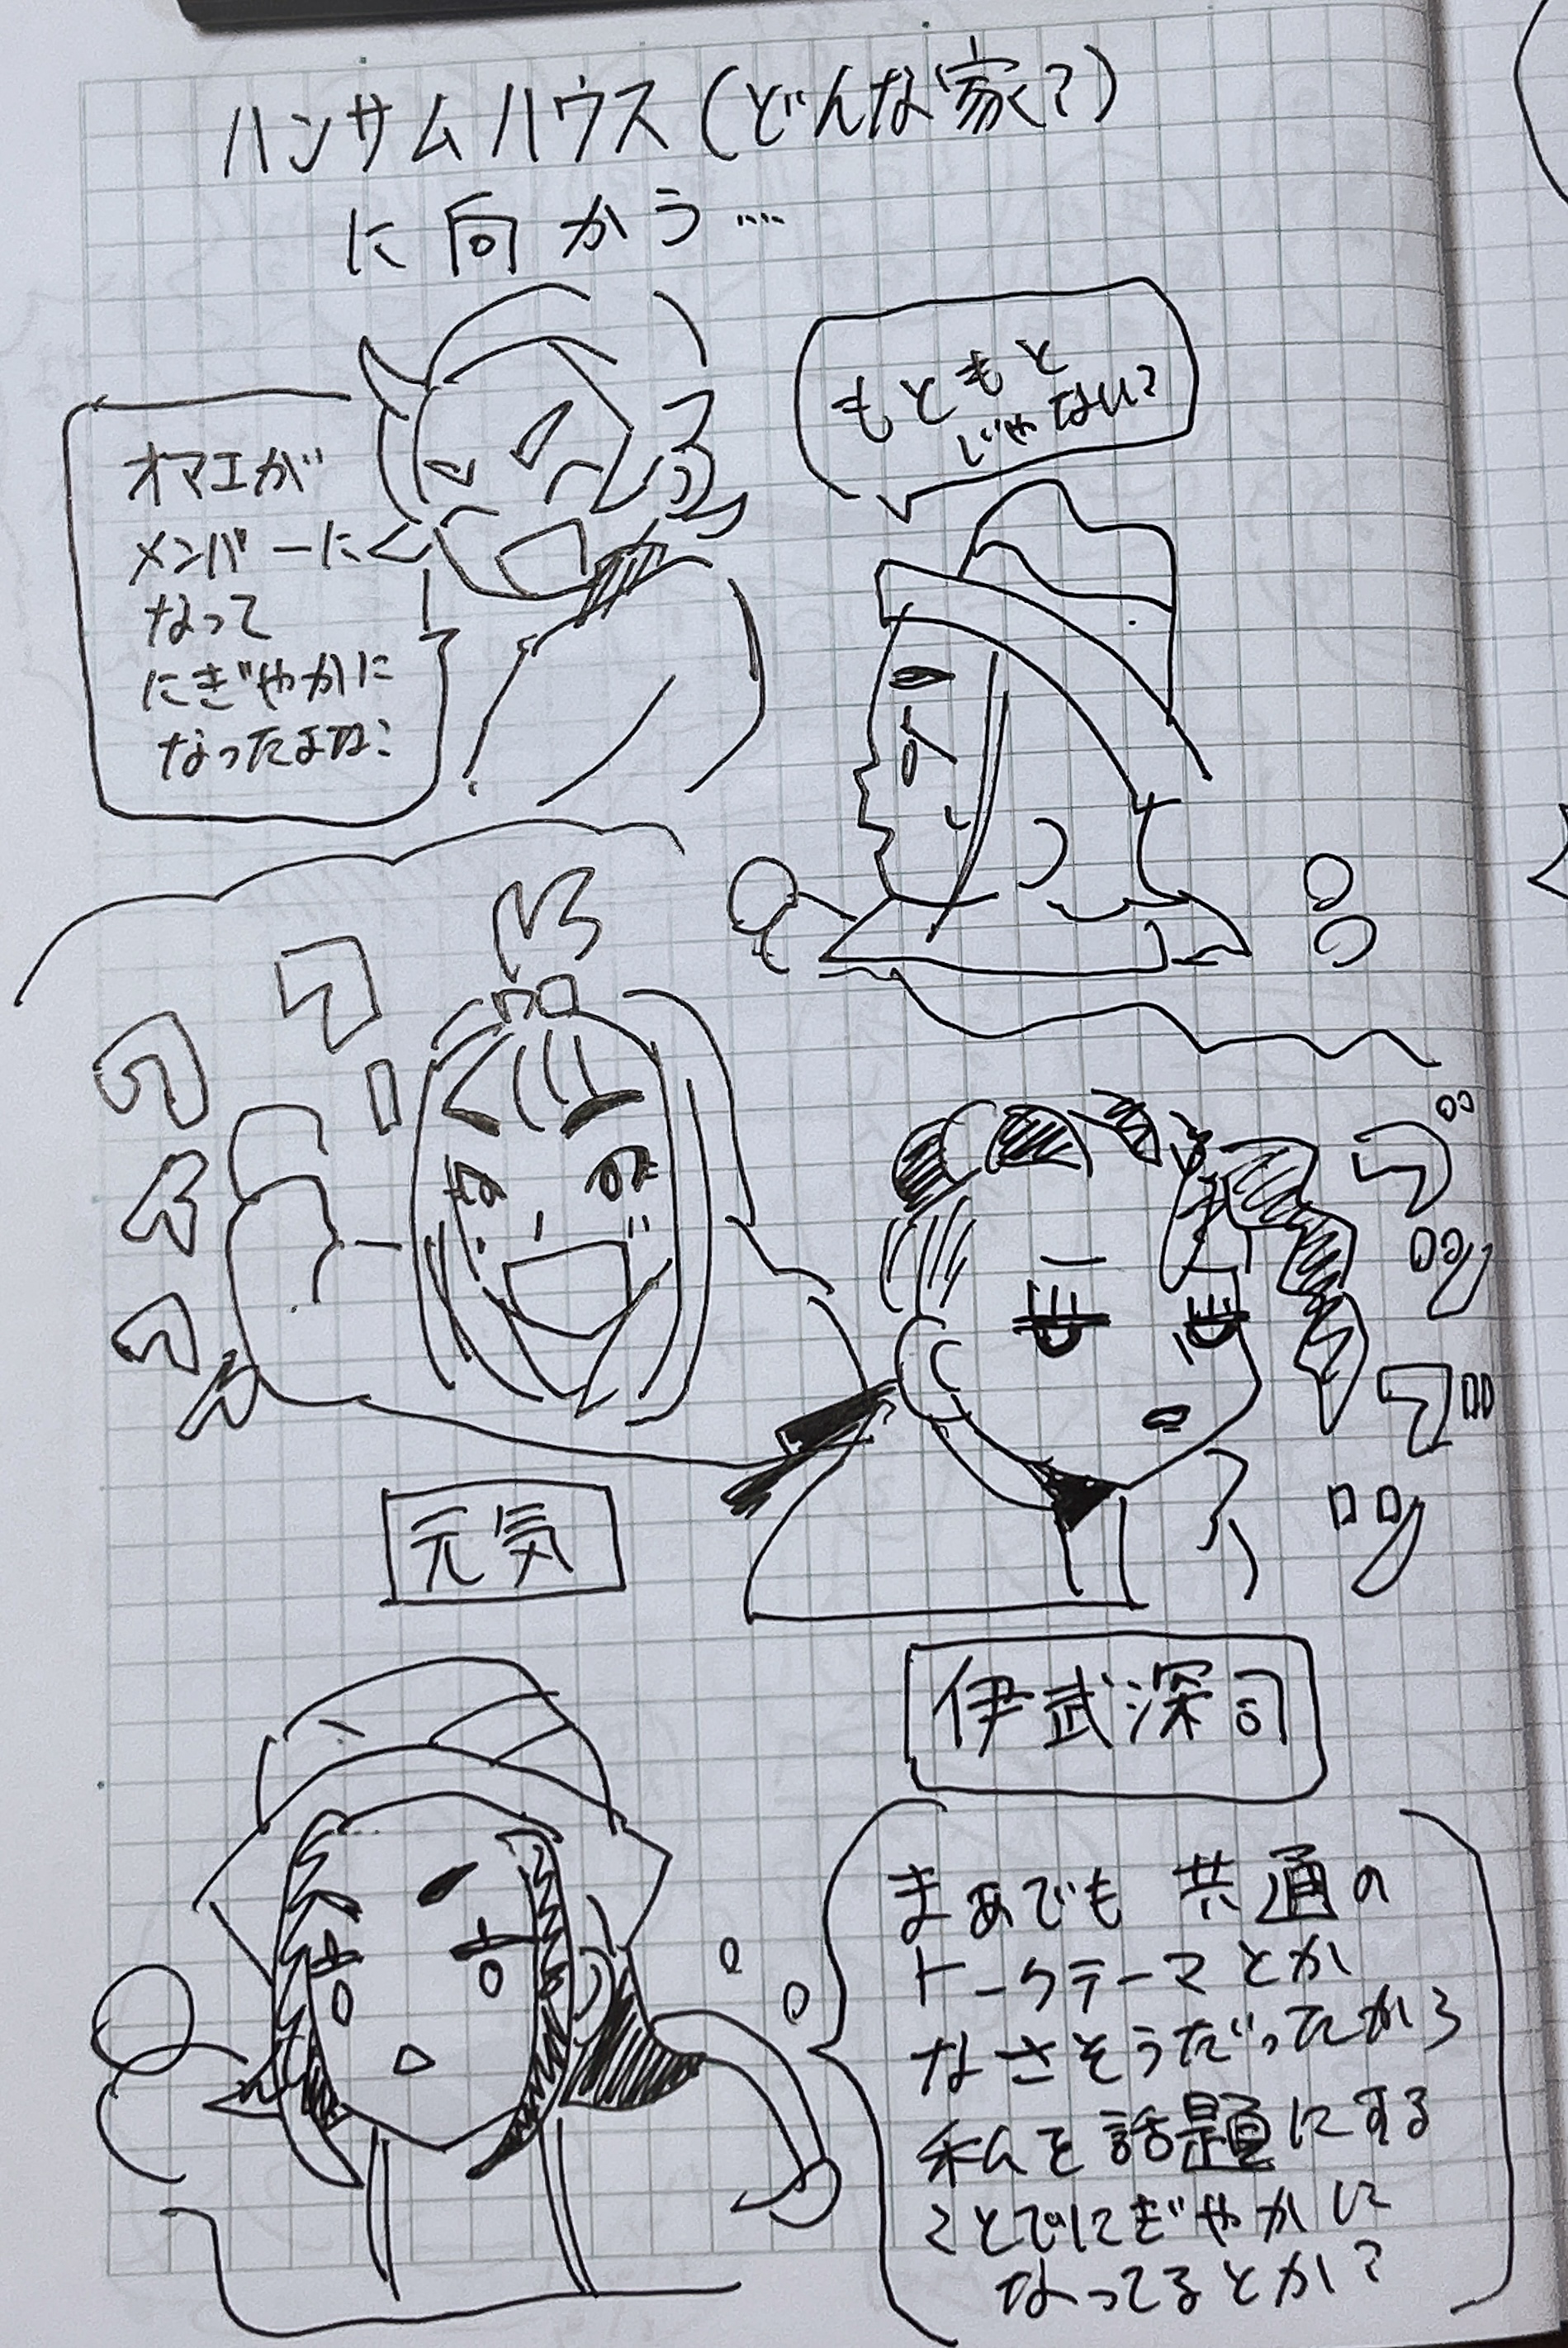 ハンサムハウス(どんな家?)
に向かう……
オマエが
メンバーに
なって
にぎやかに
なったよな:
もともと
じゃない?
元気
伊武深司
まあでも 共通の
トークテーマとか
なさそうだったから
私を話題にする
ことでにぎやかに
なってるとか?